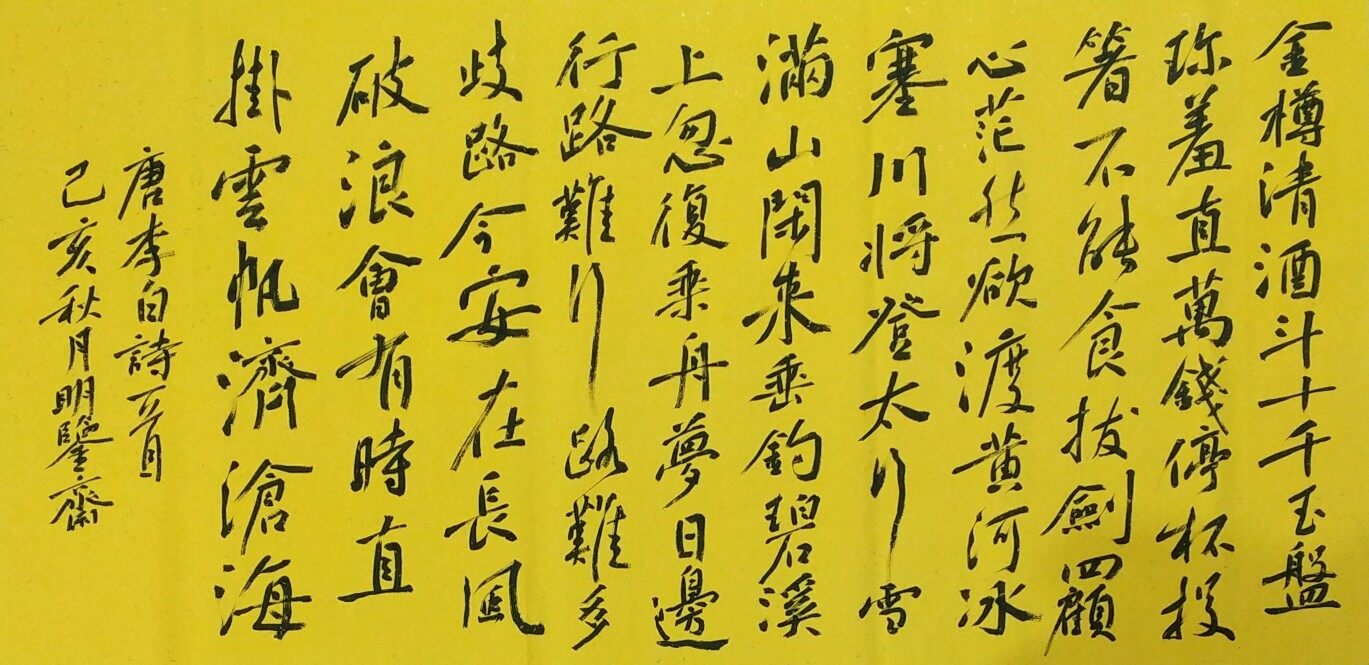 金樽清酒斗十千玉盤
珍羞直萬錢停杯投
箸不能食拔劍四顧
心茫然欲渡黄河冰
塞川將登太行雪
滿山閑來垂釣碧溪
上忽復乘舟夢日邊
行路難行路難多
歧路今安在長風
破浪會有時直
掛雲帆濟滄海
唐李白詩一首
己亥秋月明鑒齋